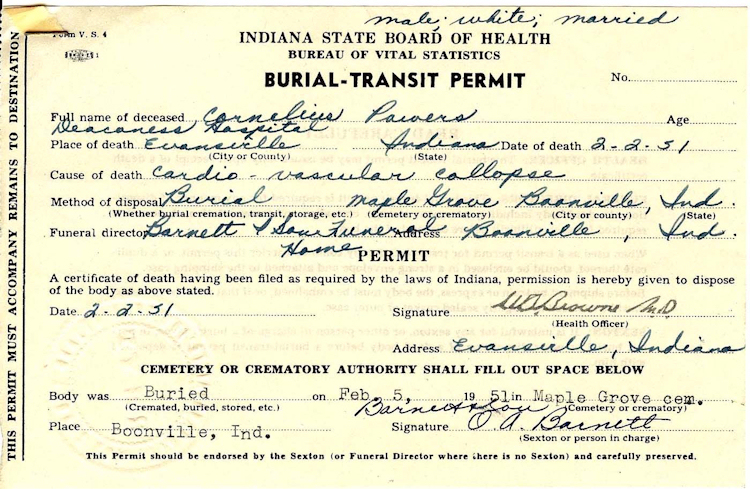 male; white; married
Form V. S. 4
INDIANA STATE BOARD OF HEALTH
BUREAU OF VITAL STATISTICS
BURIAL-TRANSIT PERMIT
No.
Full name of deceased Cornelius Powers Age
Deaconess Hospital
Place of death Evansville Indiana Date of death 2-2-51
(City or County) (State)
Cause of death Cardio-vascular collopse
Method of disposal Burial Maple Grove Boonville, Ind.
(Whether burial cremation, transit, storage, etc.) (Cemetery or crematory) (City or county) (State)
Funeral director Barnett & Son Funeral Address Boonville, Ind.
Home
PERMIT
A certificate of death having been filed as required by the laws of Indiana, permission is hereby given to dispose
of the body as above stated.
Date 2-2-51 Signature Browne M.D
(Health Officer)
Address Evansville, Indiana
CEMETERY OR CREMATORY AUTHORITY SHALL FILL OUT SPACE BELOW
Body was Buried on Feb. 5, 1951 in Maple Grove cem.
(Cremated, buried, stored, etc.) Barnett & Son (Cemetery or crematory)
Place Boonville, Ind. Signature O. A. Barnett
(Sexton or person in charge)
This Permit should be endorsed by the Sexton (or Funeral Director where there is no Sexton) and carefully preserved.
THIS PERMIT MUST ACCOMPANY REMAINS TO DESTINATION